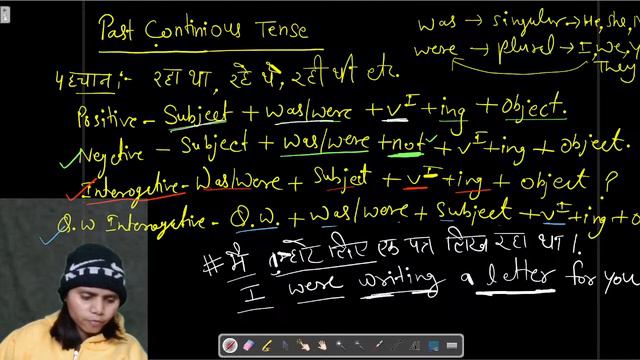 Past Continious Tense
was → singular → He, She,
were → plural → I, We, Y
They
पहचान :- रहा था, रहे थे, रही थी etc.
Positive - Subject + was/were + vI + ing + object.
Negetive - Subject + was/were + not + vI + ing + object.
Interogative - Was/were + Subject + vI + ing + object ?
Q.W Interogative - Q.W. + was/were + Subject + vI + ing + o
# मैं लिए एक पत्र लिख रहा था।
I were writing a letter for you